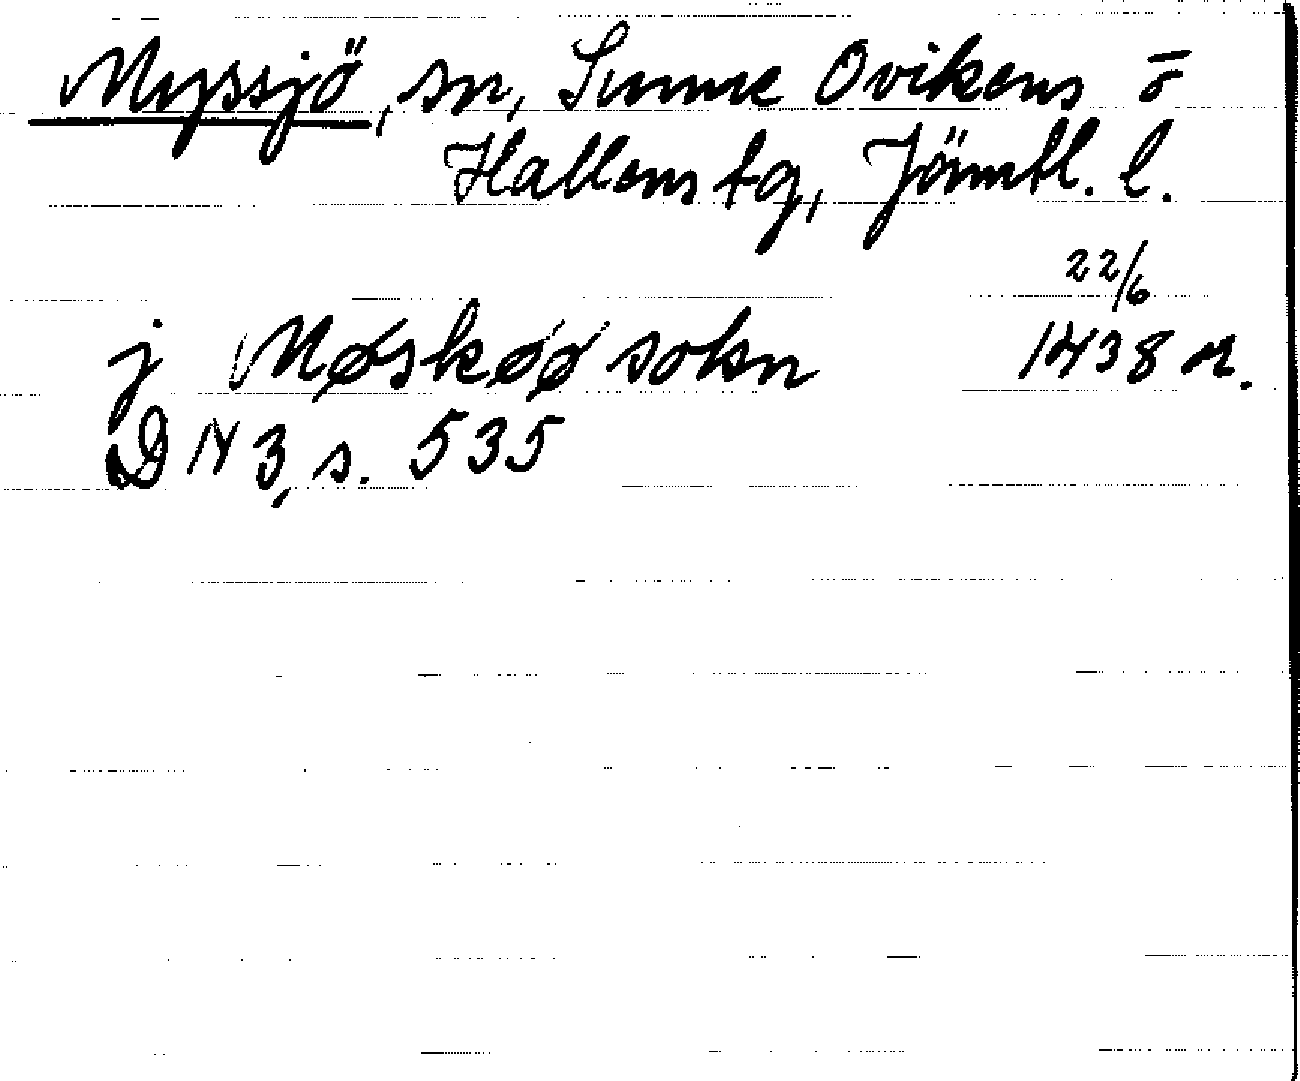 Myssjö, sn, Sunne Ovikens ō
Hallens tg, Jämtl. l.
22/6
j Møskøø sokn 1438 n.
DN 3, s. 535